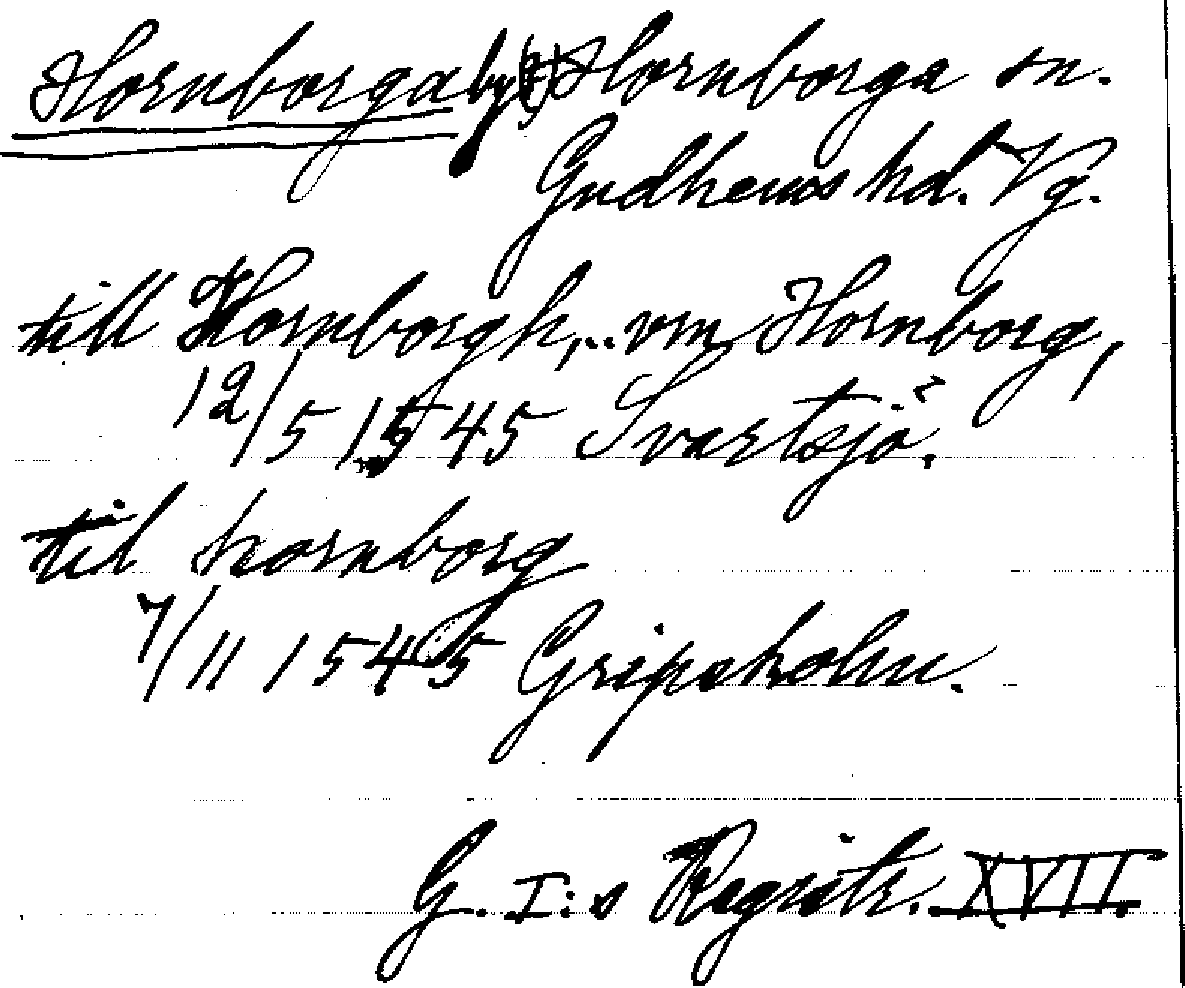 Hornborga by(?) Hornborga sn.
Gudhems hd. Vg.
till Hornborgh, .. vm Hornborg,
12/5 1545 Svartsjö.
til hornborg
7/11 1545 Gripsholm.
G. I:s Registr. XVII.